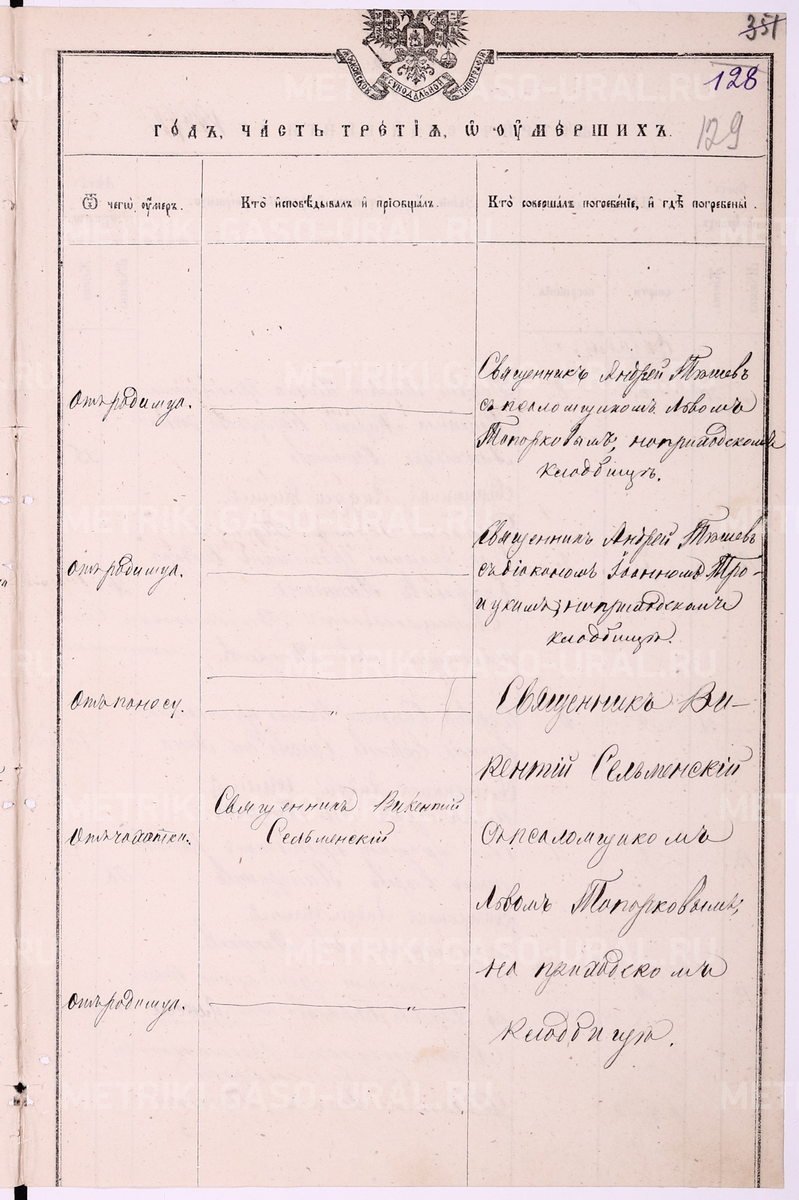 351
МОСКОВСКОЙ СѴНОДАЛЬНОЙ ТИПОГРАФІИ
128
129
ГО́ДЪ, ЧА́СТЬ ТРЕ́ТІѦ, Ѡ҆ ОУ҆МЕ́РШИХЪ.
Ѿ чегѡ̀ оу҆́меръ.
Кто̀ и҆сповѣ́дывалъ и҆ прїѻбща́лъ.
Кто̀ соверша́лъ погребе́нїе, и҆ гдѣ̀ погребены̀.
Отъ родимца.
Священникъ Андрей Тюшевъ
съ псаломщикомъ Львомъ
Топорковымъ, на приходскомъ
кладбищѣ.
Отъ родимца.
Священникъ Андрей Тюшевъ
съ діакономъ Іоанномъ Тро-
ицкимъ; на приходскомъ
кладбищѣ.
Отъ поносу.
Отъ чахотки.
Священникъ Викентій
Сельменскій
Отъ родимца.
Священникъ Ви-
кентій Сельменскій
съ псаломщикомъ
Львомъ Топорковымъ;
на приходскомъ
кладбищѣ.
METRIKI.GASO-URAL.RU